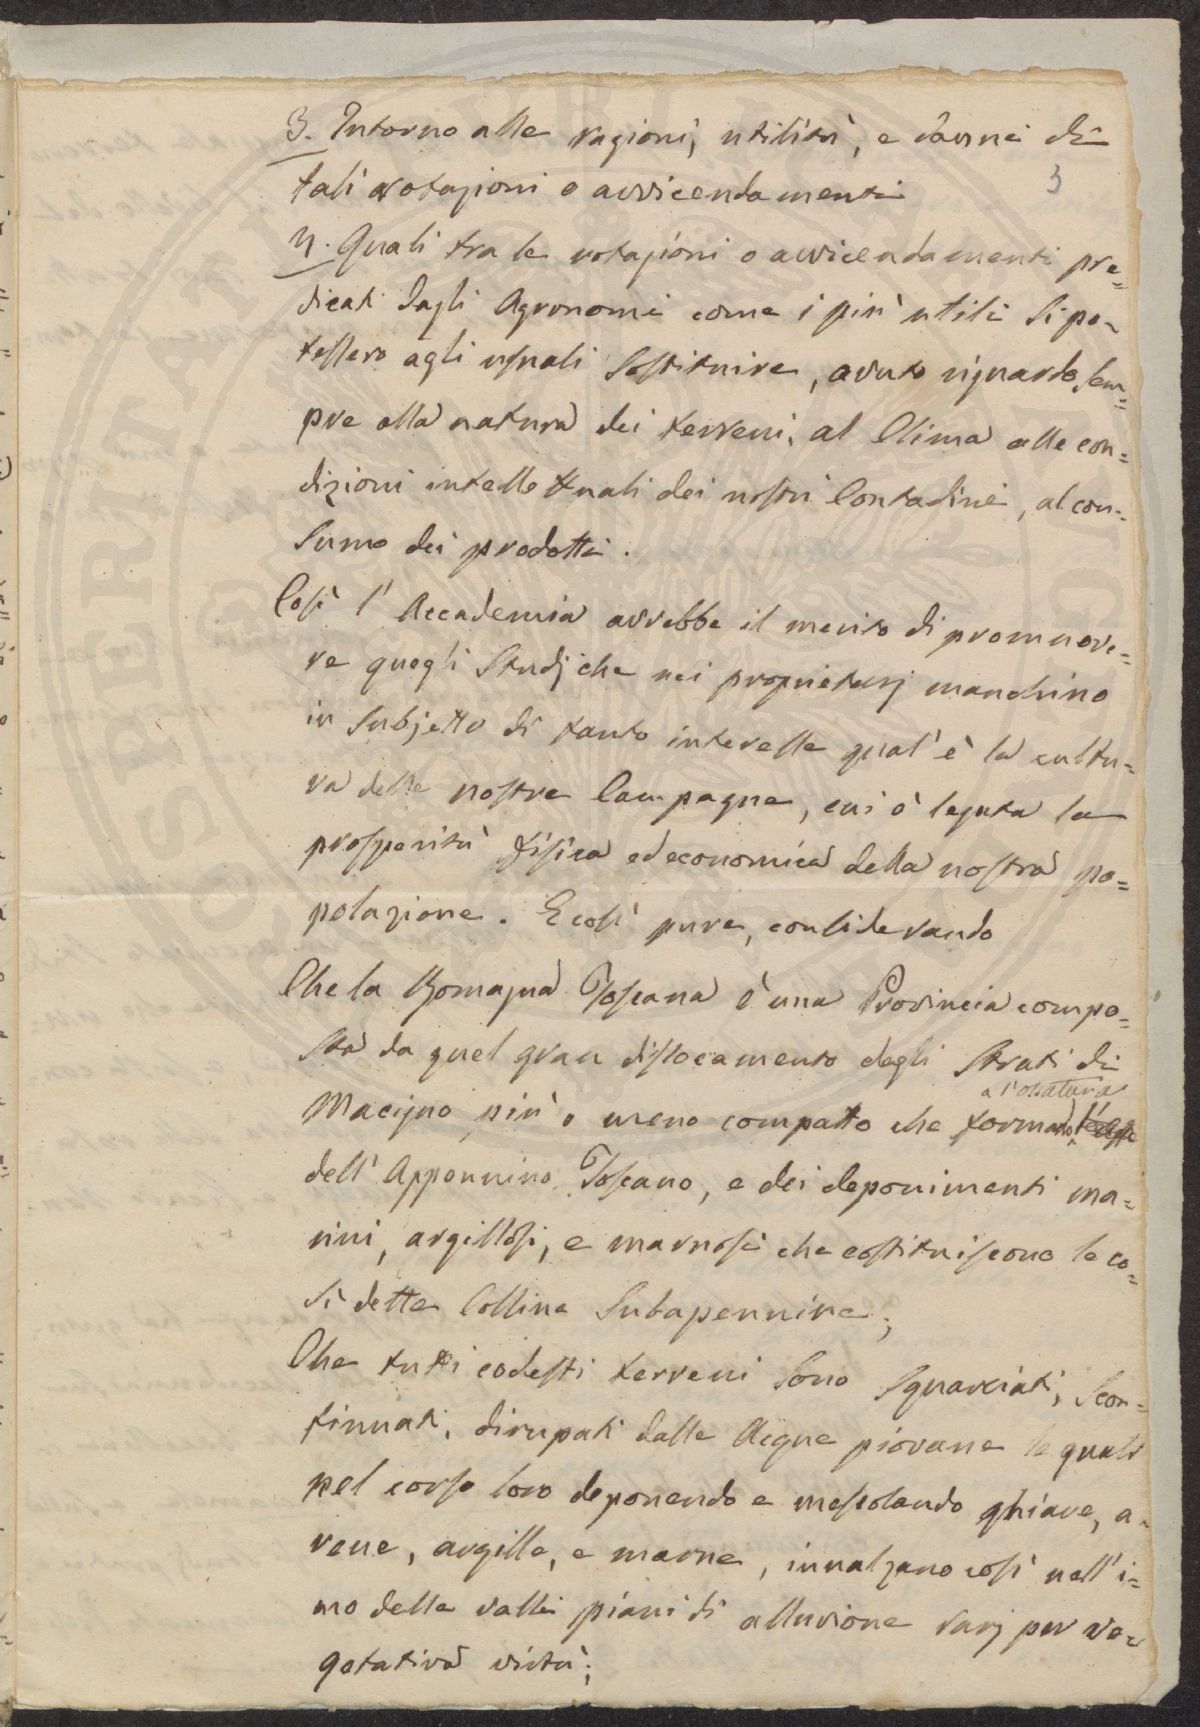 3. Intorno alle ragioni, utilità, e danni di
3
tali rotazioni o avvicendamenti
4. Quali tra le rotazioni o avvicendamenti pre=
dicati dagli Agronomi come i più utili si po-
tessero agli usuali sostituire, avuto riguardo sem=
pre alla natura dei terreni, al Clima alle con=
dizioni intellettuali dei nostri Contadini, al con=
sumo dei prodotti.
Così l'Accademia avrebbe il merito di promuove=
re quegli Studj che nei proprietarj manchino
in subjetto di tanto interesse qual'è la cultu=
ra delle nostre Campagne, cui è legata la
prosperità fisica ed economica della nostra po=
polazione. E così pure, considerando
Che la Romagna Toscana è una Provincia compo=
sta da quel gran dislocamento degli Strati di
l'ossatura
Macigno più o meno compatto che formano
dell'Appennino Toscano, e dei deponimenti ma=
rini, argillosi, e marnosi che costituiscono le co=
sì dette Colline Subapennine;
Che tutti codesti terreni sono squarciati, scon=
tinuati, dirupati dalle Acque piovane le quali
nel corso loro deponendo e mescolando ghiare, a-
rene, argille, e marne, innalzano così nell'i=
mo delle valli piani di alluvione varj per ve=
getativa virtù;